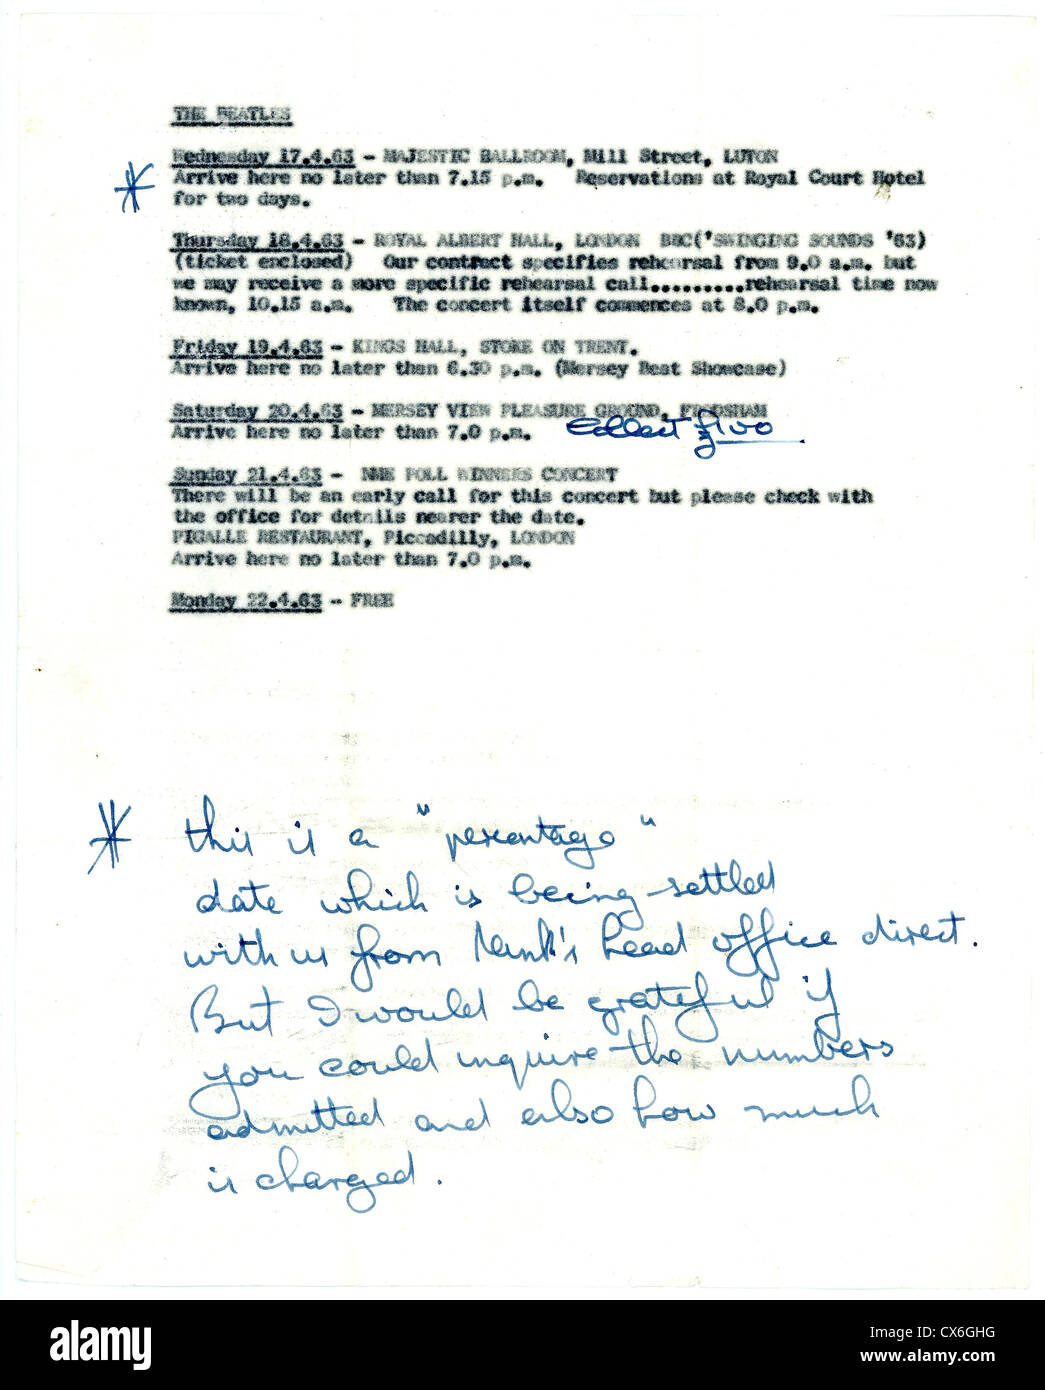 THE BEATLES
Wednesday 17.4.63 - MAJESTIC BALLROOM, Mill Street, LUTON
* Arrive here no later than 7.15 p.m. Reservations at Royal Court Hotel
for two days.
Thursday 18.4.63 - ROYAL ALBERT HALL, LONDON BBC('SWINGING SOUNDS '63)
(ticket enclosed) Our contract specifies rehearsal from 9.0 a.m. but
we may receive a more specific rehearsal call.........rehearsal time now
known, 10.15 a.m. The concert itself commences at 8.0 p.m.
Friday 19.4.63 - KINGS HALL, STOKE ON TRENT.
Arrive here no later than 6.30 p.m. (Mersey Beat Showcase)
Saturday 20.4.63 - MERSEY VIEW PLEASURE GROUND, FRODSHAM
Arrive here no later than 7.0 p.m. Collect
Sunday 21.4.63 - NME POLL WINNERS CONCERT
There will be an early call for this concert but please check with
the office for details nearer the date.
PIGALLE RESTAURANT, Piccadilly, LONDON
Arrive here no later than 7.0 p.m.
Monday 22.4.63 - FREE
* this is a "percentage"
date which is being settled
with us from Rank's head office direct.
But I would be grateful if
you could inquire the numbers
admitted and also how much
is charged.
alamy
Image ID: CX6GHG
www.alamy.com